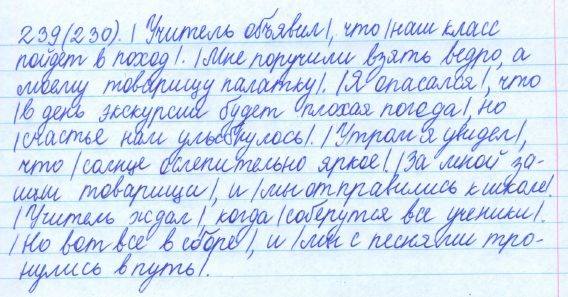 239(230). | Учитель объявил|, что |наш класс
пойдет в поход|. |Мне поручили взять ведро, а
моему товарищу палатку|. |Я опасался|, что
|в день экскурсии будет плохая погода|, но
|счастье нам улыбнулось|. |Утром я увидел|,
что |солнце ослепительно яркое|. |За мной за-
шли товарищи|, и |мы отправились к школе|.
|Учитель ждал|, когда |соберутся все ученики|.
|Но вот все в сборе|, и |мы с песнями тро-
нулись в путь|.